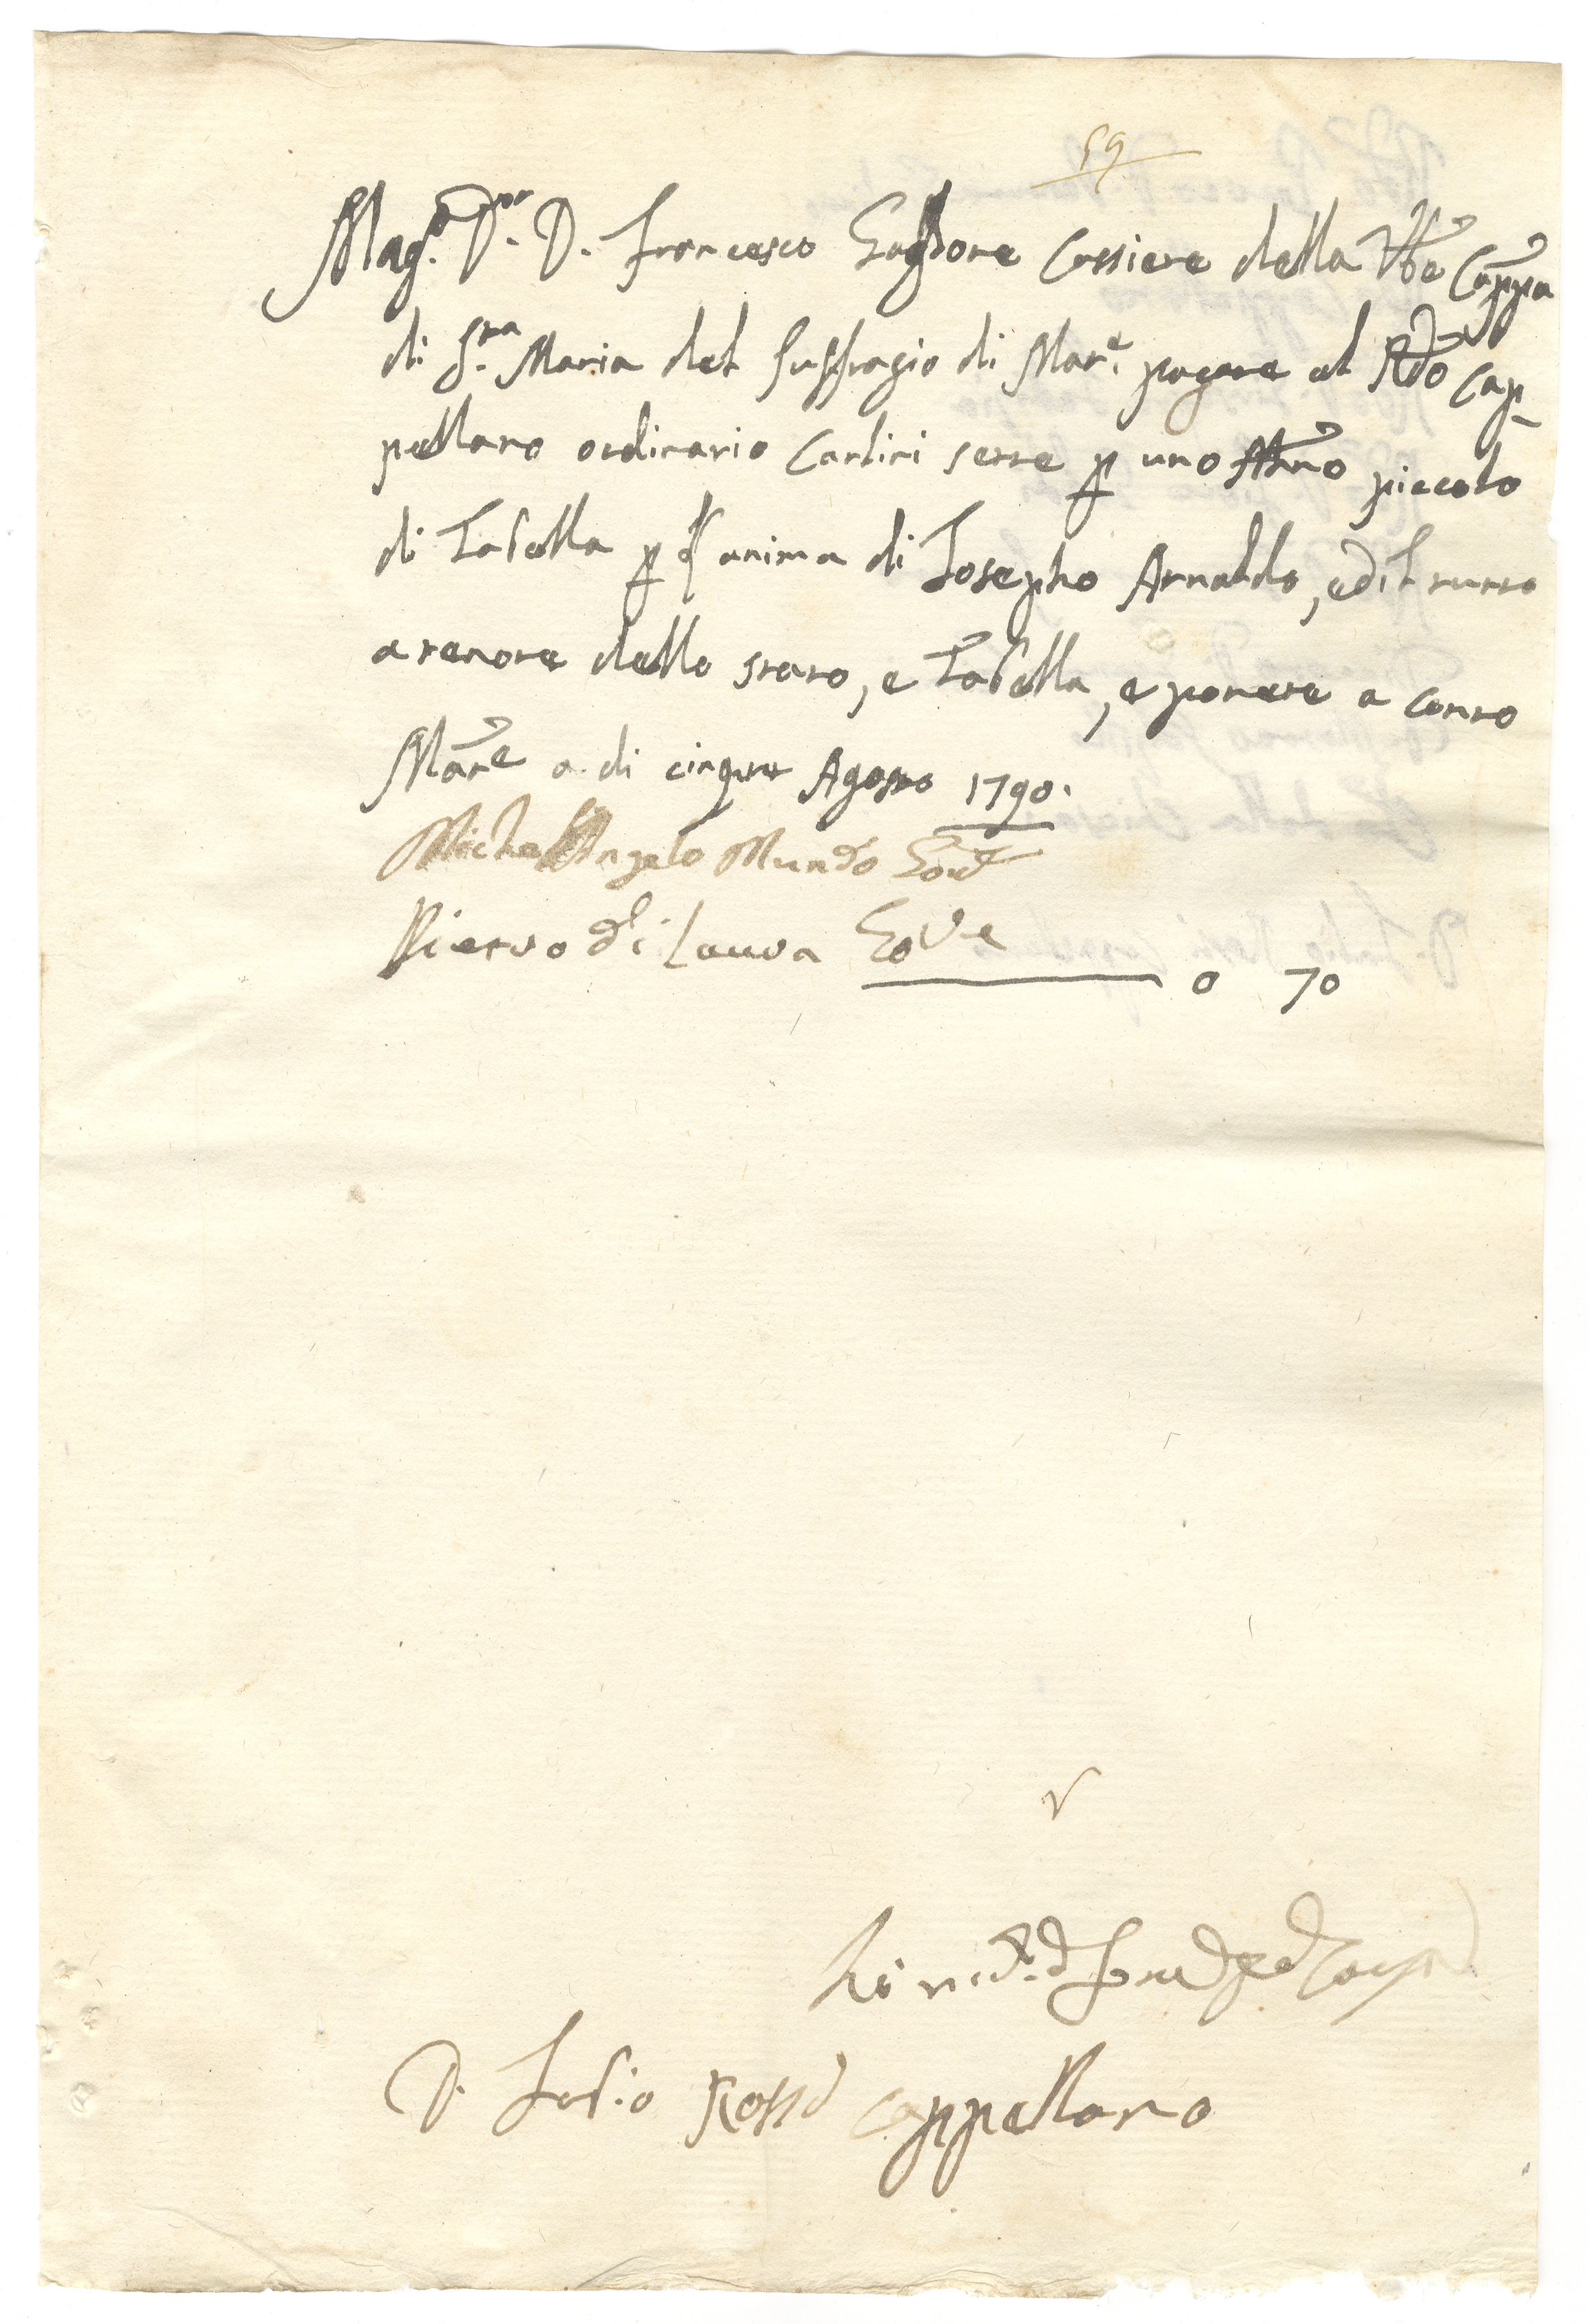 59
Mag.co D.r D. Francesco Gaglione Cassiere della Vble Cappa
di S.ta Maria del suffragio di Mar.e pagate al Rdo Cap-
pellano ordinario Carlini sette p uno Annro piccolo
di Tabella p l'anima di Iosepho Arnaldo, ed il tutto
a tenore dello stato, e Tabella, e ponete a conto
Marne a di cinque Agosto 1790.
Michel'Angelo Mundo Gove
Pietro di Lauva Gove
0 70
D. Rossi Cappellano